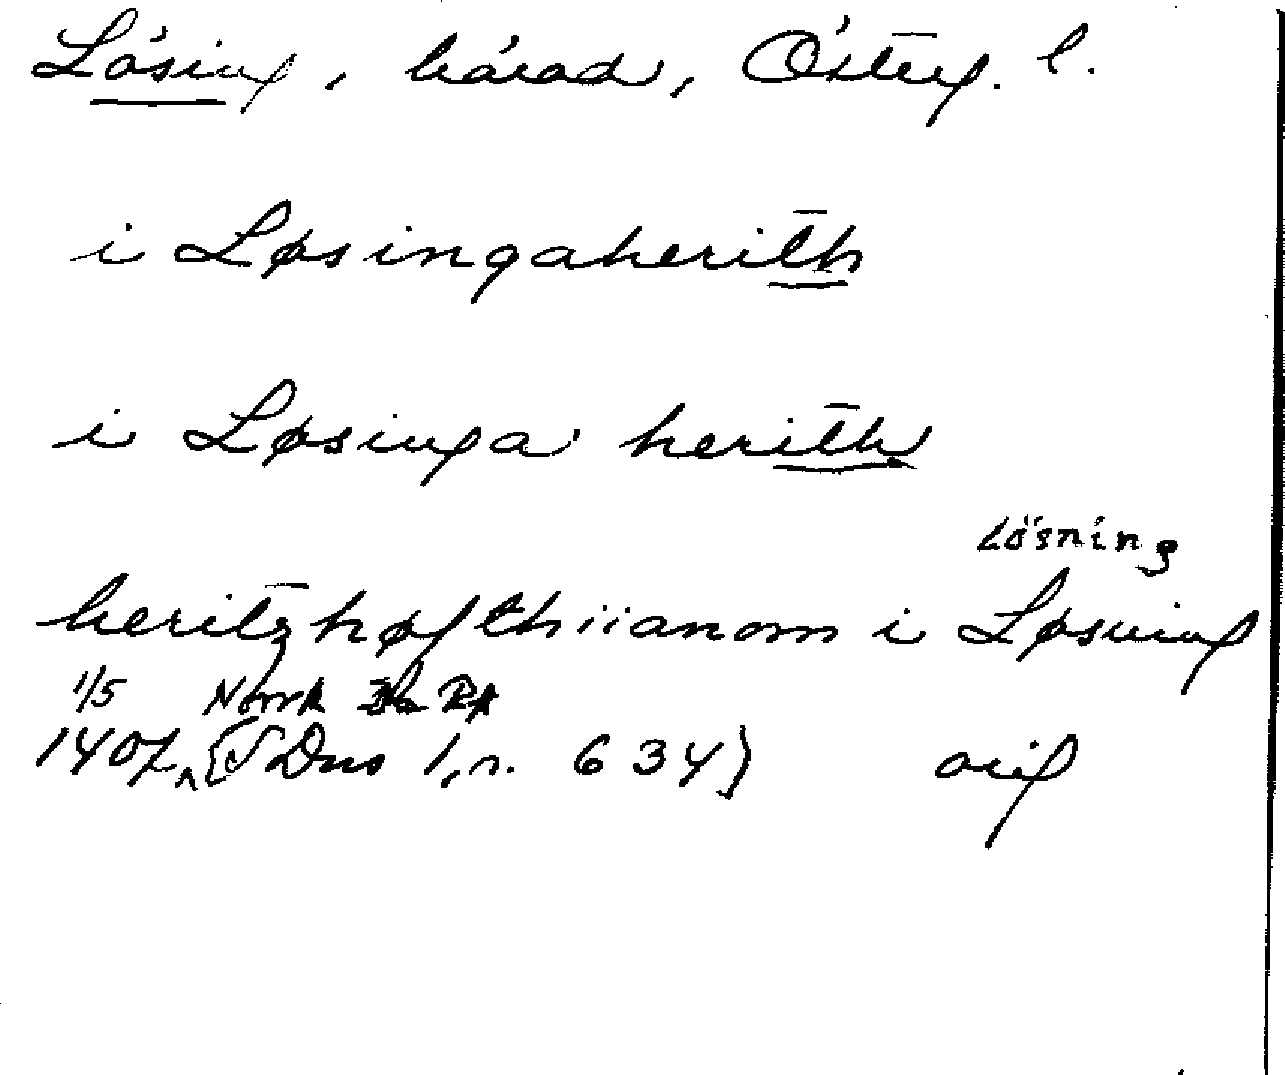 Lösing, härad, Österg. l.
i Løsingaherith
i Løsinga herith
Lösning
heritzhøfthiianom i Løsning
1/5 Norra RA
1407 (SDns 1, n. 634) orig